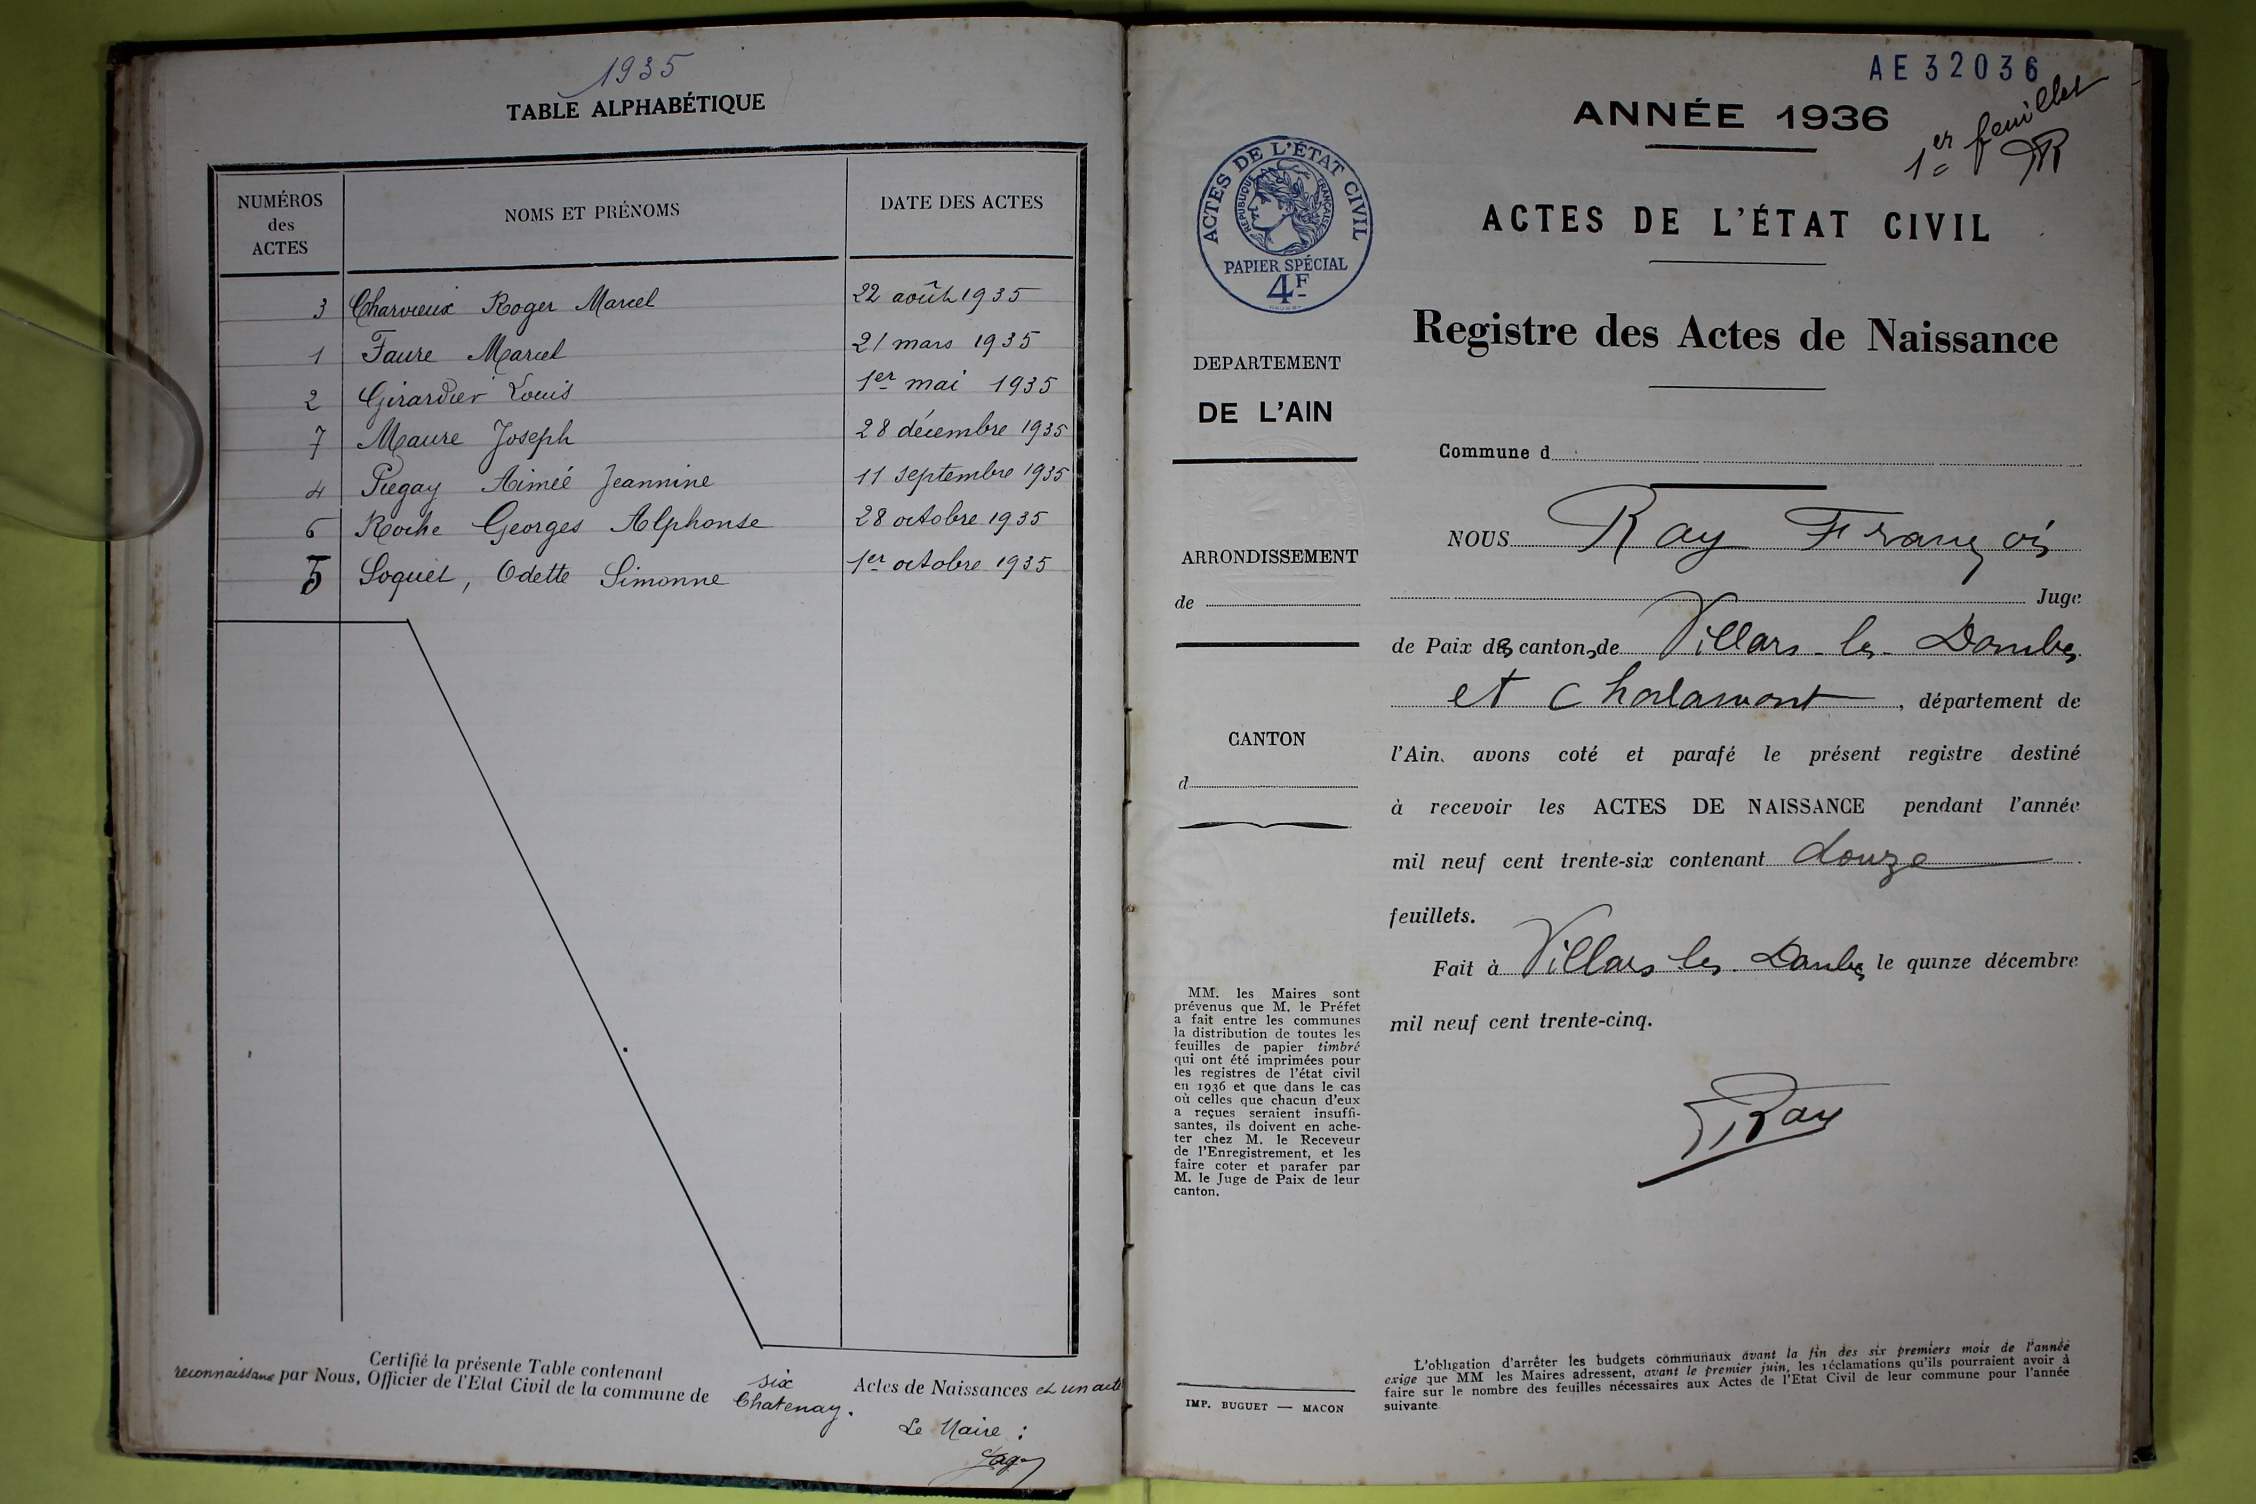 1935
TABLE ALPHABÉTIQUE
NUMÉROS
des
ACTES
NOMS ET PRÉNOMS
DATE DES ACTES
3 Charvieux Roger Marcel 22 août 1935
1 Faure Marcel 21 mars 1935
2 Girardier Louis 1er mai 1935
7 Maure Joseph 28 décembre 1935
4 Piegay Aimée Jeannine 11 septembre 1935
6 Roche Georges Alphonse 28 octobre 1935
5 Soquet, Odette Simonne 1er octobre 1935
Certifié la présente Table contenant six Actes de Naissances et un acte
reconnaissance par Nous, Officier de l'Etat Civil de la commune de Chatenay.
Le Maire :
AE32036
1er feuillet
ANNÉE 1936
ACTES DE L'ÉTAT CIVIL
RÉPUBLIQUE FRANÇAISE
PAPIER SPÉCIAL
4F
ACTES DE L'ÉTAT CIVIL
Registre des Actes de Naissance
DEPARTEMENT
DE L'AIN
ARRONDISSEMENT
de
CANTON
d
MM. les Maires sont
prévenus que M. le Préfet
a fait entre les communes
la distribution de toutes les
feuilles de papier timbré
qui ont été imprimées pour
les registres de l'état civil
en 1936 et que dans le cas
où celles que chacun d'eux
a reçues seraient insuffi-
santes, ils doivent en ache-
ter chez M. le Receveur
de l'Enregistrement, et les
faire coter et parafer par
M. le Juge de Paix de leur
canton.
IMP. BUGUET — MACON
Commune d
NOUS Ray François
Juge
de Paix des cantons de Villars-les-Dombes
et Chalamont, département de
l'Ain, avons coté et parafé le présent registre destiné
à recevoir les ACTES DE NAISSANCE pendant l'année
mil neuf cent trente-six contenant douze
feuillets.
Fait à Villars les Dombes le quinze décembre
mil neuf cent trente-cinq.
FRay
L'obligation d'arrêter les budgets communaux avant la fin des six premiers mois de l'année
exige que MM les Maires adressent, avant le premier juin, les réclamations qu'ils pourraient avoir à
faire sur le nombre des feuilles nécessaires aux Actes de l'Etat Civil de leur commune pour l'année
suivante